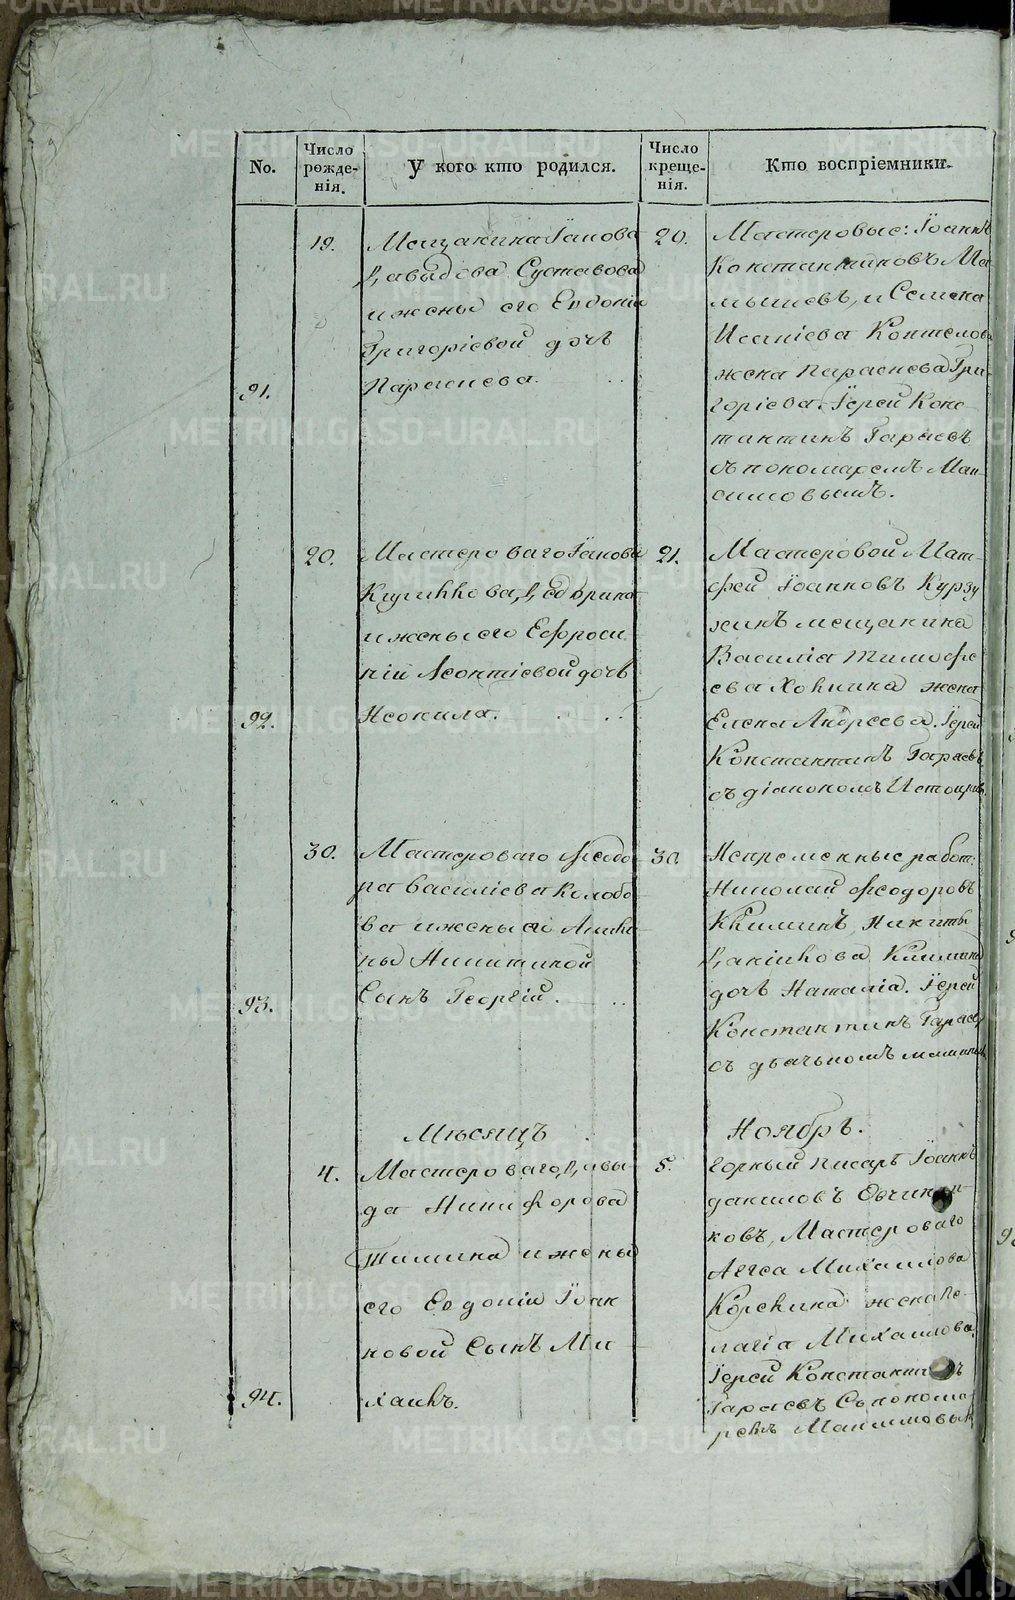 No.
Число рожде-
нія.
У кого кто родился.
Число креще-
нія.
Кто воспріемники.
91.
19.
Мещанина Іакова
Давыдова Суставова
и жены его Евдокіи
Григоріевой дочь
Параскева.
20.
Мастеровые: Іоаннъ
Константиновъ Ма-
мышевъ, и Семена
Исакіева Коптелова
жена Параскева Гри-
горіева. Іерей Конс-
тантинъ Гараевъ
съ пономаремъ Мак-
симовымъ.
92.
20.
Мастероваго Іакова
и жены его Ефроси
ніи Леонтіевой дочь
Неонила.
21.
Мастеровой Мат-
фей Іоанновъ Курзу
хинъ мещанина
Василія Тимофе
ева жена
Елена Андреева. Іерей
Константинъ Гараевъ
съ діакономъ
93.
30.
Мастероваго Феодо
ра Василіева Колобо
ва и жены его
ны Никитиной
Сынъ Георгій.
30.
Непременные работ.
Николай Феодоровъ
Климинъ, Никиты
Климина
дочь Наталія. Іерей
Константинъ Гараевъ
съ дьячкомъ
Мѣсяцъ
Ноябрь.
94.
4.
Мастероваго Давы-
да Никифорова
Тимина и жены
его Евдокіи Іоан
новой Сынъ Ми
хаилъ.
5.
Горный писарь Іоаннъ
Даниловъ Овчинни
ковъ, Мастероваго
Аггеа Михаилова
жена Пе-
лагіа Михаилова.
Іерей Константинъ
Гараевъ Съ понома
ремъ Максимовым
METRIKI.GASO-URAL.RU